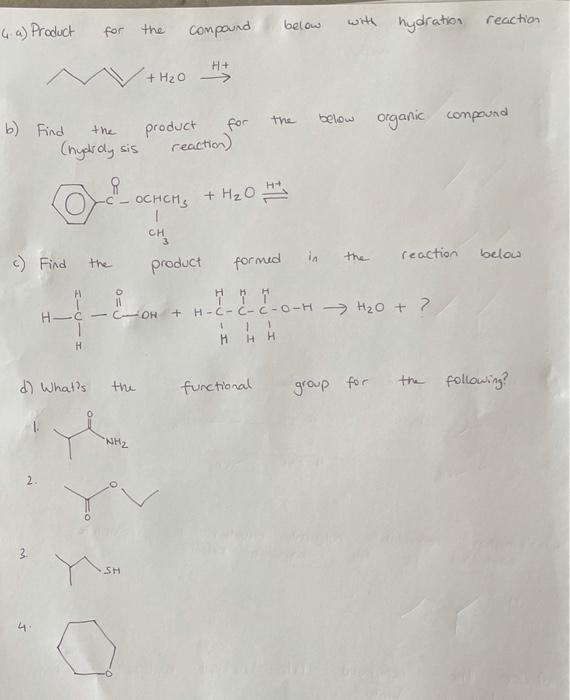 4. a) Product for the compound below with hydration reaction
+ H2O H+ →
b) Find the product for the below organic compound
(hydrolysis reaction)
O
C - OCHCH3 + H2O H+ ⇌
CH3
c) Find the product formed in the reaction below
H O H H H
H - C - C - OH + H - C - C - C - O - H → H2O + ?
H H H H
d) What's the functional group for the following?
1. O
NH2
2. O
O
3. SH
4. O